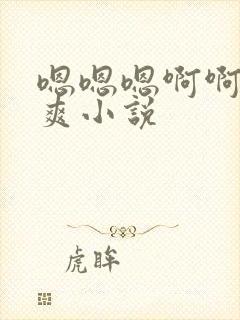 嗯嗯嗯啊啊
爽小説
虎眸